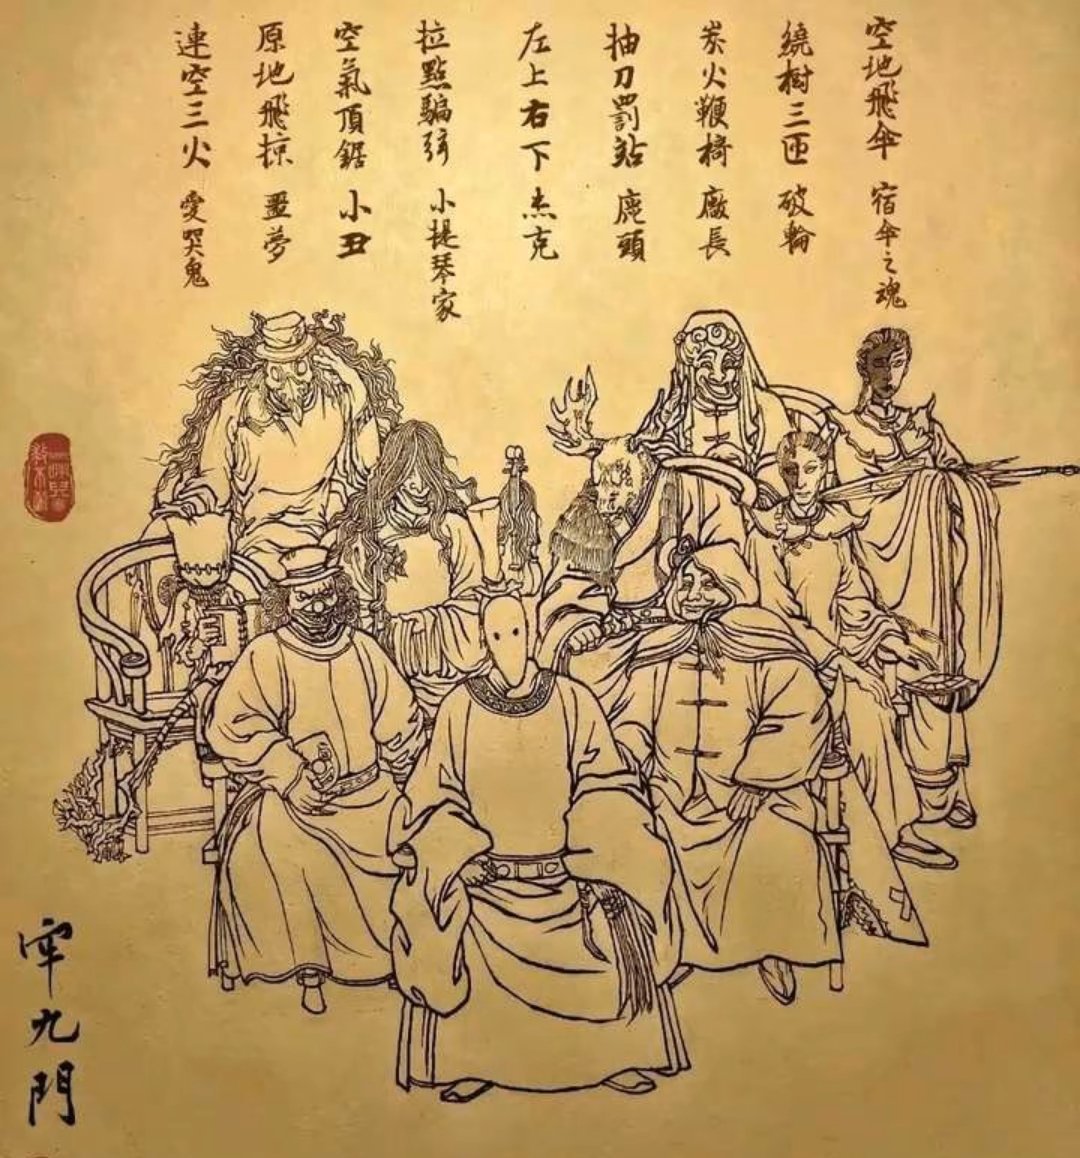 空地飛伞 宿伞之魂
繞樹三匝 破輪
炭火鞭椅 廠長
抽刀罰站 鹿頭
左上右下 杰克
拉點騙弦 小提琴家
空氣頂鋸 小丑
原地飛掠 噩夢
連空三火 愛哭鬼
牢九門